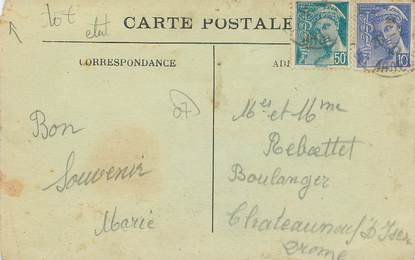 lot
CARTE POSTALE
50
10
CORRESPONDANCE
07
Bon
Souvenir
Marie
Mrs et Mme
Reboettet
Boulanger
Chateauneuf D'Isere
Drome